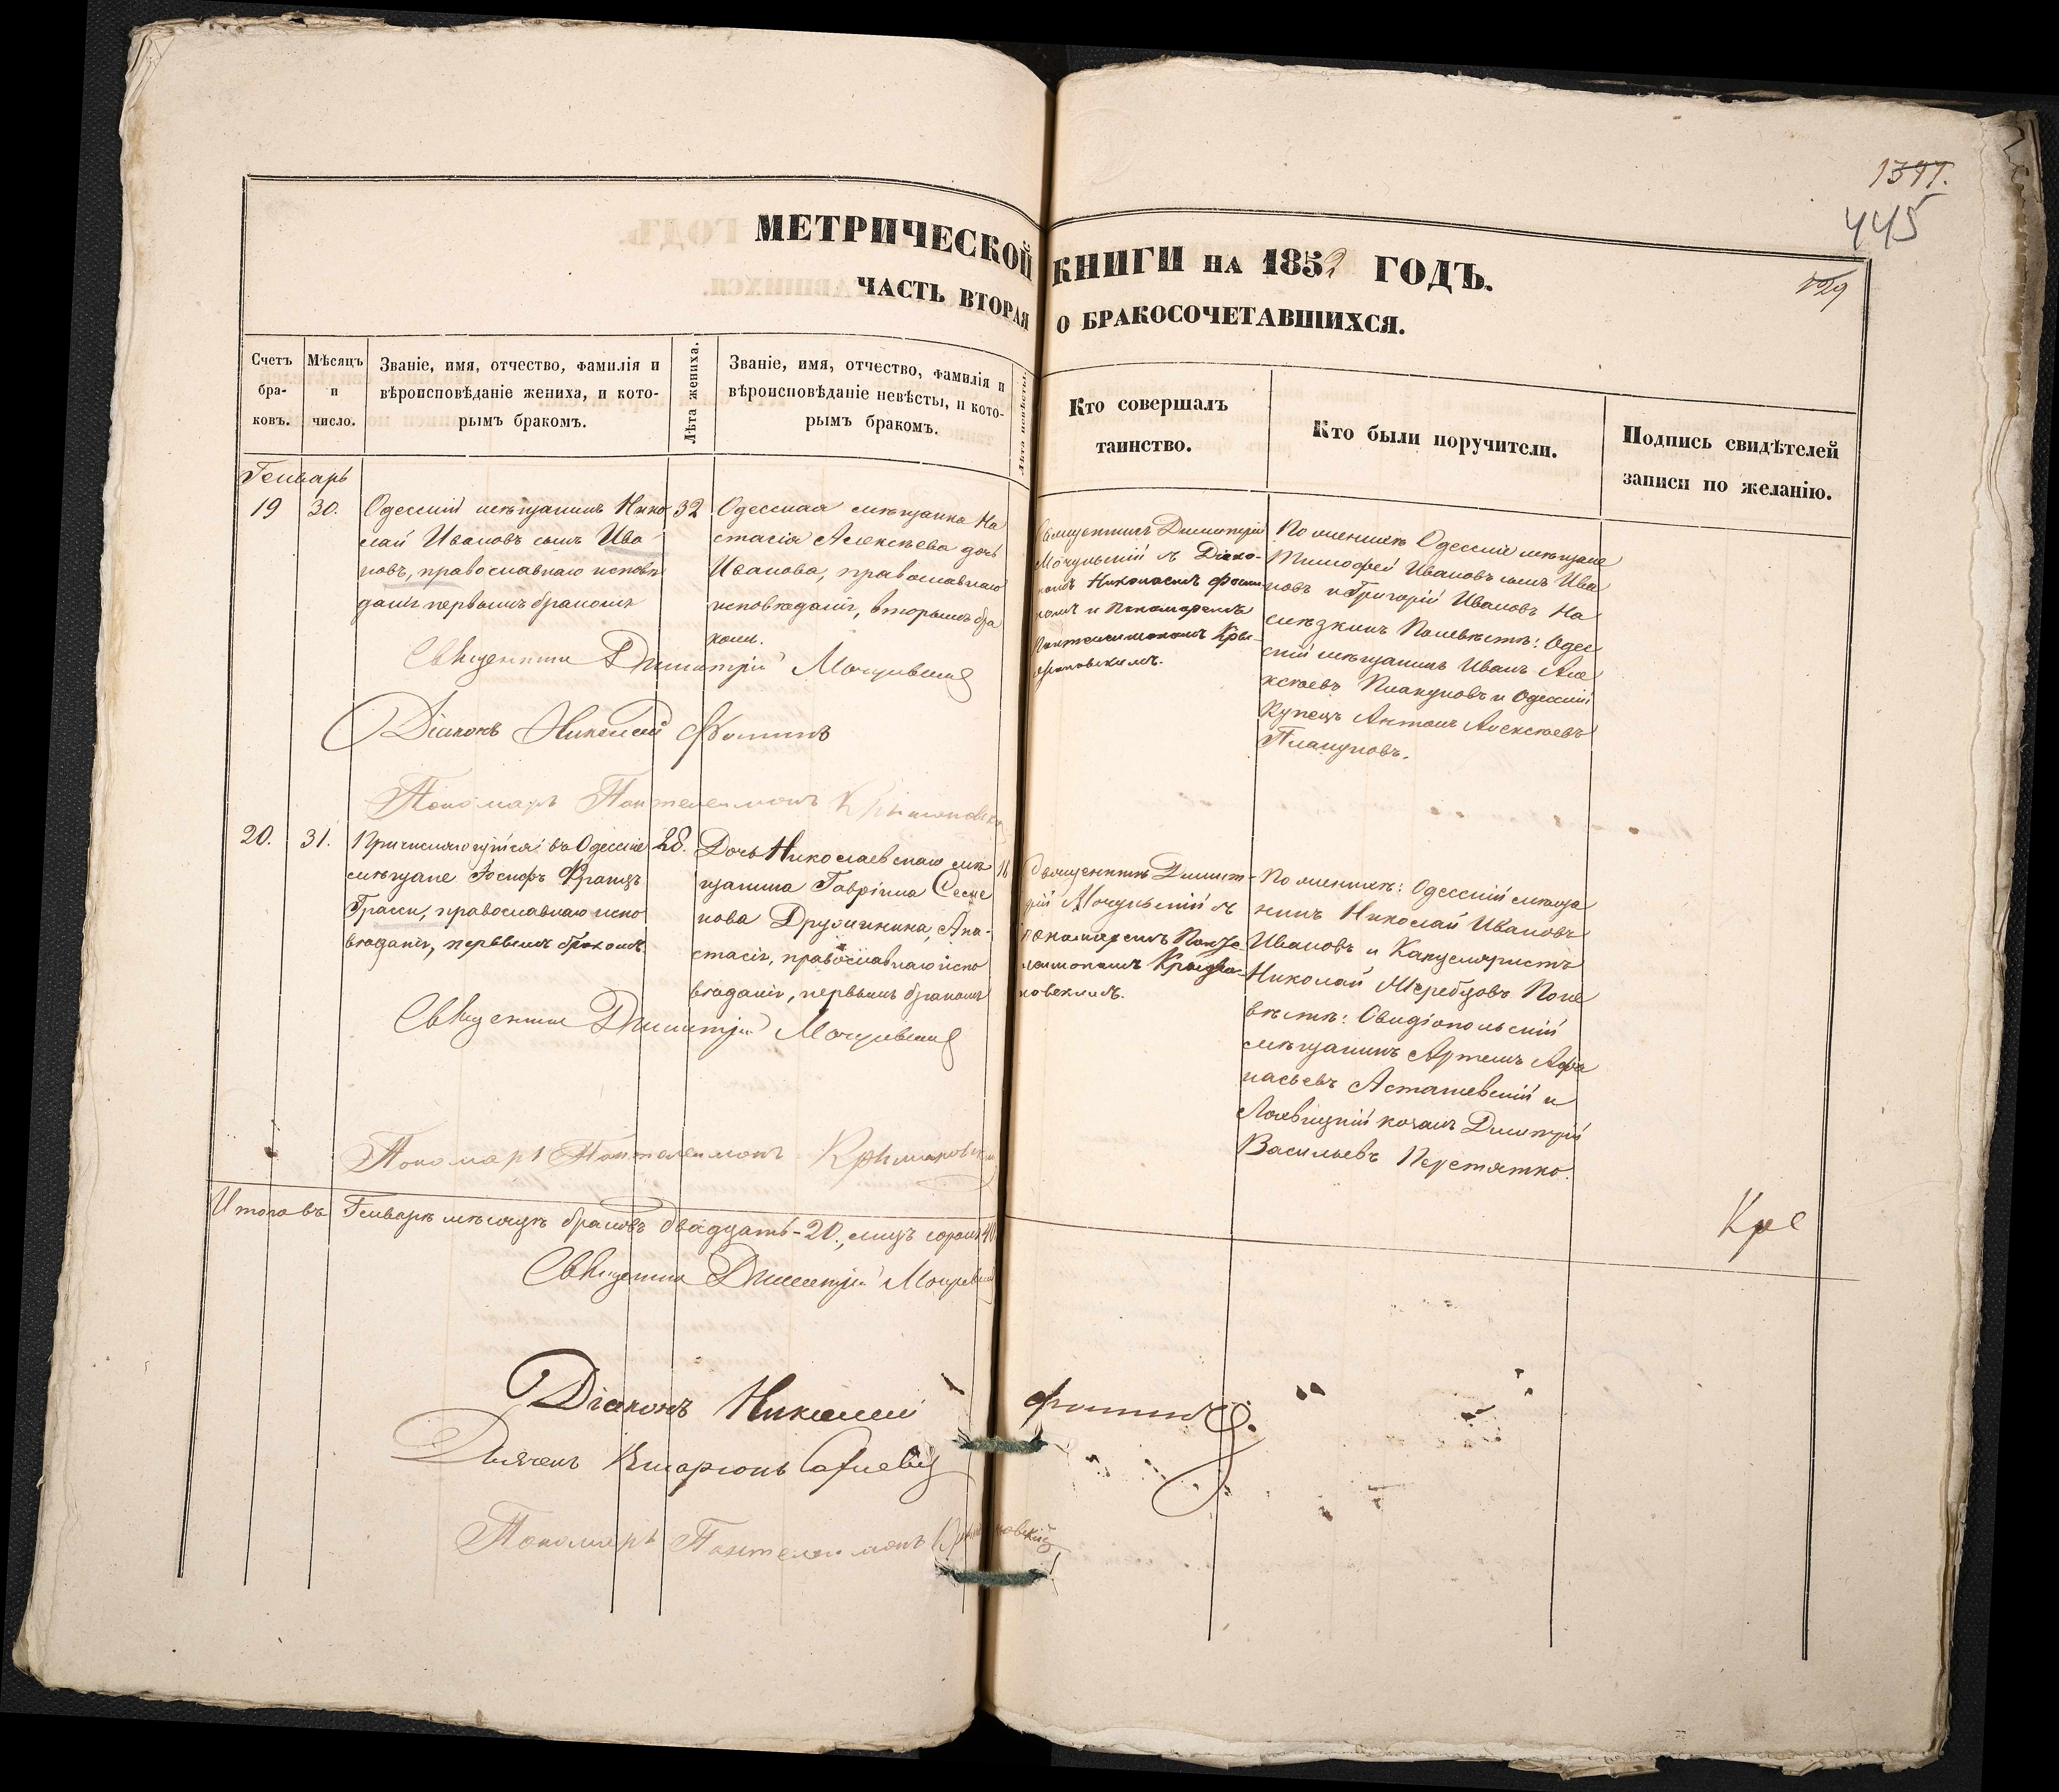 1397.
445
МЕТРИЧЕСКОЙ КНИГИ НА 1852 ГОДЪ.
ЧАСТЬ ВТОРАЯ О БРАКОСОЧЕТАВШИХСЯ.
Счетъ бра-ковъ.
Мѣсяцъ и число.
Званіе, имя, отчество, фамилія и
вѣроисповѣданіе жениха, и кото-
рымъ бракомъ.
Лѣта жениха.
Званіе, имя, отчество, фамилія и
вѣроисповѣданіе невѣсты, и кото-
рымъ бракомъ.
Лѣта невѣсты.
Кто совершалъ
таинство.
Кто были поручители.
Подпись свидѣтелей
записи по желанію.
Генварь
19
30.
Одесскій мѣщанинъ Нико
лай Ивановъ сынъ Ива-
новъ, православнаго исповѣ
данія первымъ бракомъ
32
Одесская мѣщанка На
стасія Алексѣева дочь
Иванова, православнаго
исповѣданія, вторымъ бра
комъ.
Священникъ Димитрій
Мочульскій съ Діако-
номъ Николаемъ Фоми-
нымъ и Пономаремъ
Пантелеимономъ
По женихѣ Одесскіе мѣщане
Тимофей Ивановъ сынъ Ива
новъ и Григорій Ивановъ На
По невѣстѣ: Одес
скій мѣщанинъ Иванъ Але
ксѣевъ Плакуновъ и Одесскій
Купецъ Антонъ Алексѣевъ
Плакуновъ.
Священникъ Димитрій Мочульскій
Діаконъ Николай Фоминъ
Пономарь Пантелеимонъ
20.
31.
Причисляющійся въ Одесскіе
мѣщане Іосифъ Францъ
Грасси, православнаго испо
вѣданія, первымъ бракомъ.
28.
Дочь Николаевскаго мѣ
щанина Гавріила Семе
нова Дружинина, Ана-
стасія, православнаго испо
вѣданія, первымъ бракомъ
16
Священникъ Димит-
рій Мочульскій съ
пономаремъ Панте-
леимономъ
По женихѣ: Одесскій мѣща
нинъ Николай Ивановъ
Ивановъ и Канцеляристъ
Николай Жеребцовъ По не
вѣстѣ: Овидіопольскій
мѣщанинъ Артемъ Афа
насьевъ Асташевскій и
козакъ Димитрій
Васильевъ Перетятко.
Священникъ Димитрій Мочульскій
Пономарь Пантелеимонъ
Итого въ Генварѣ мѣсяцѣ браковъ двадцать-20., лицъ сорокъ 40.
Священникъ Димитрій Мочульскій
Кре
Діаконъ Николай Фоминъ.
Дьячекъ Иларіонъ
Пономарь Пантелеимонъ